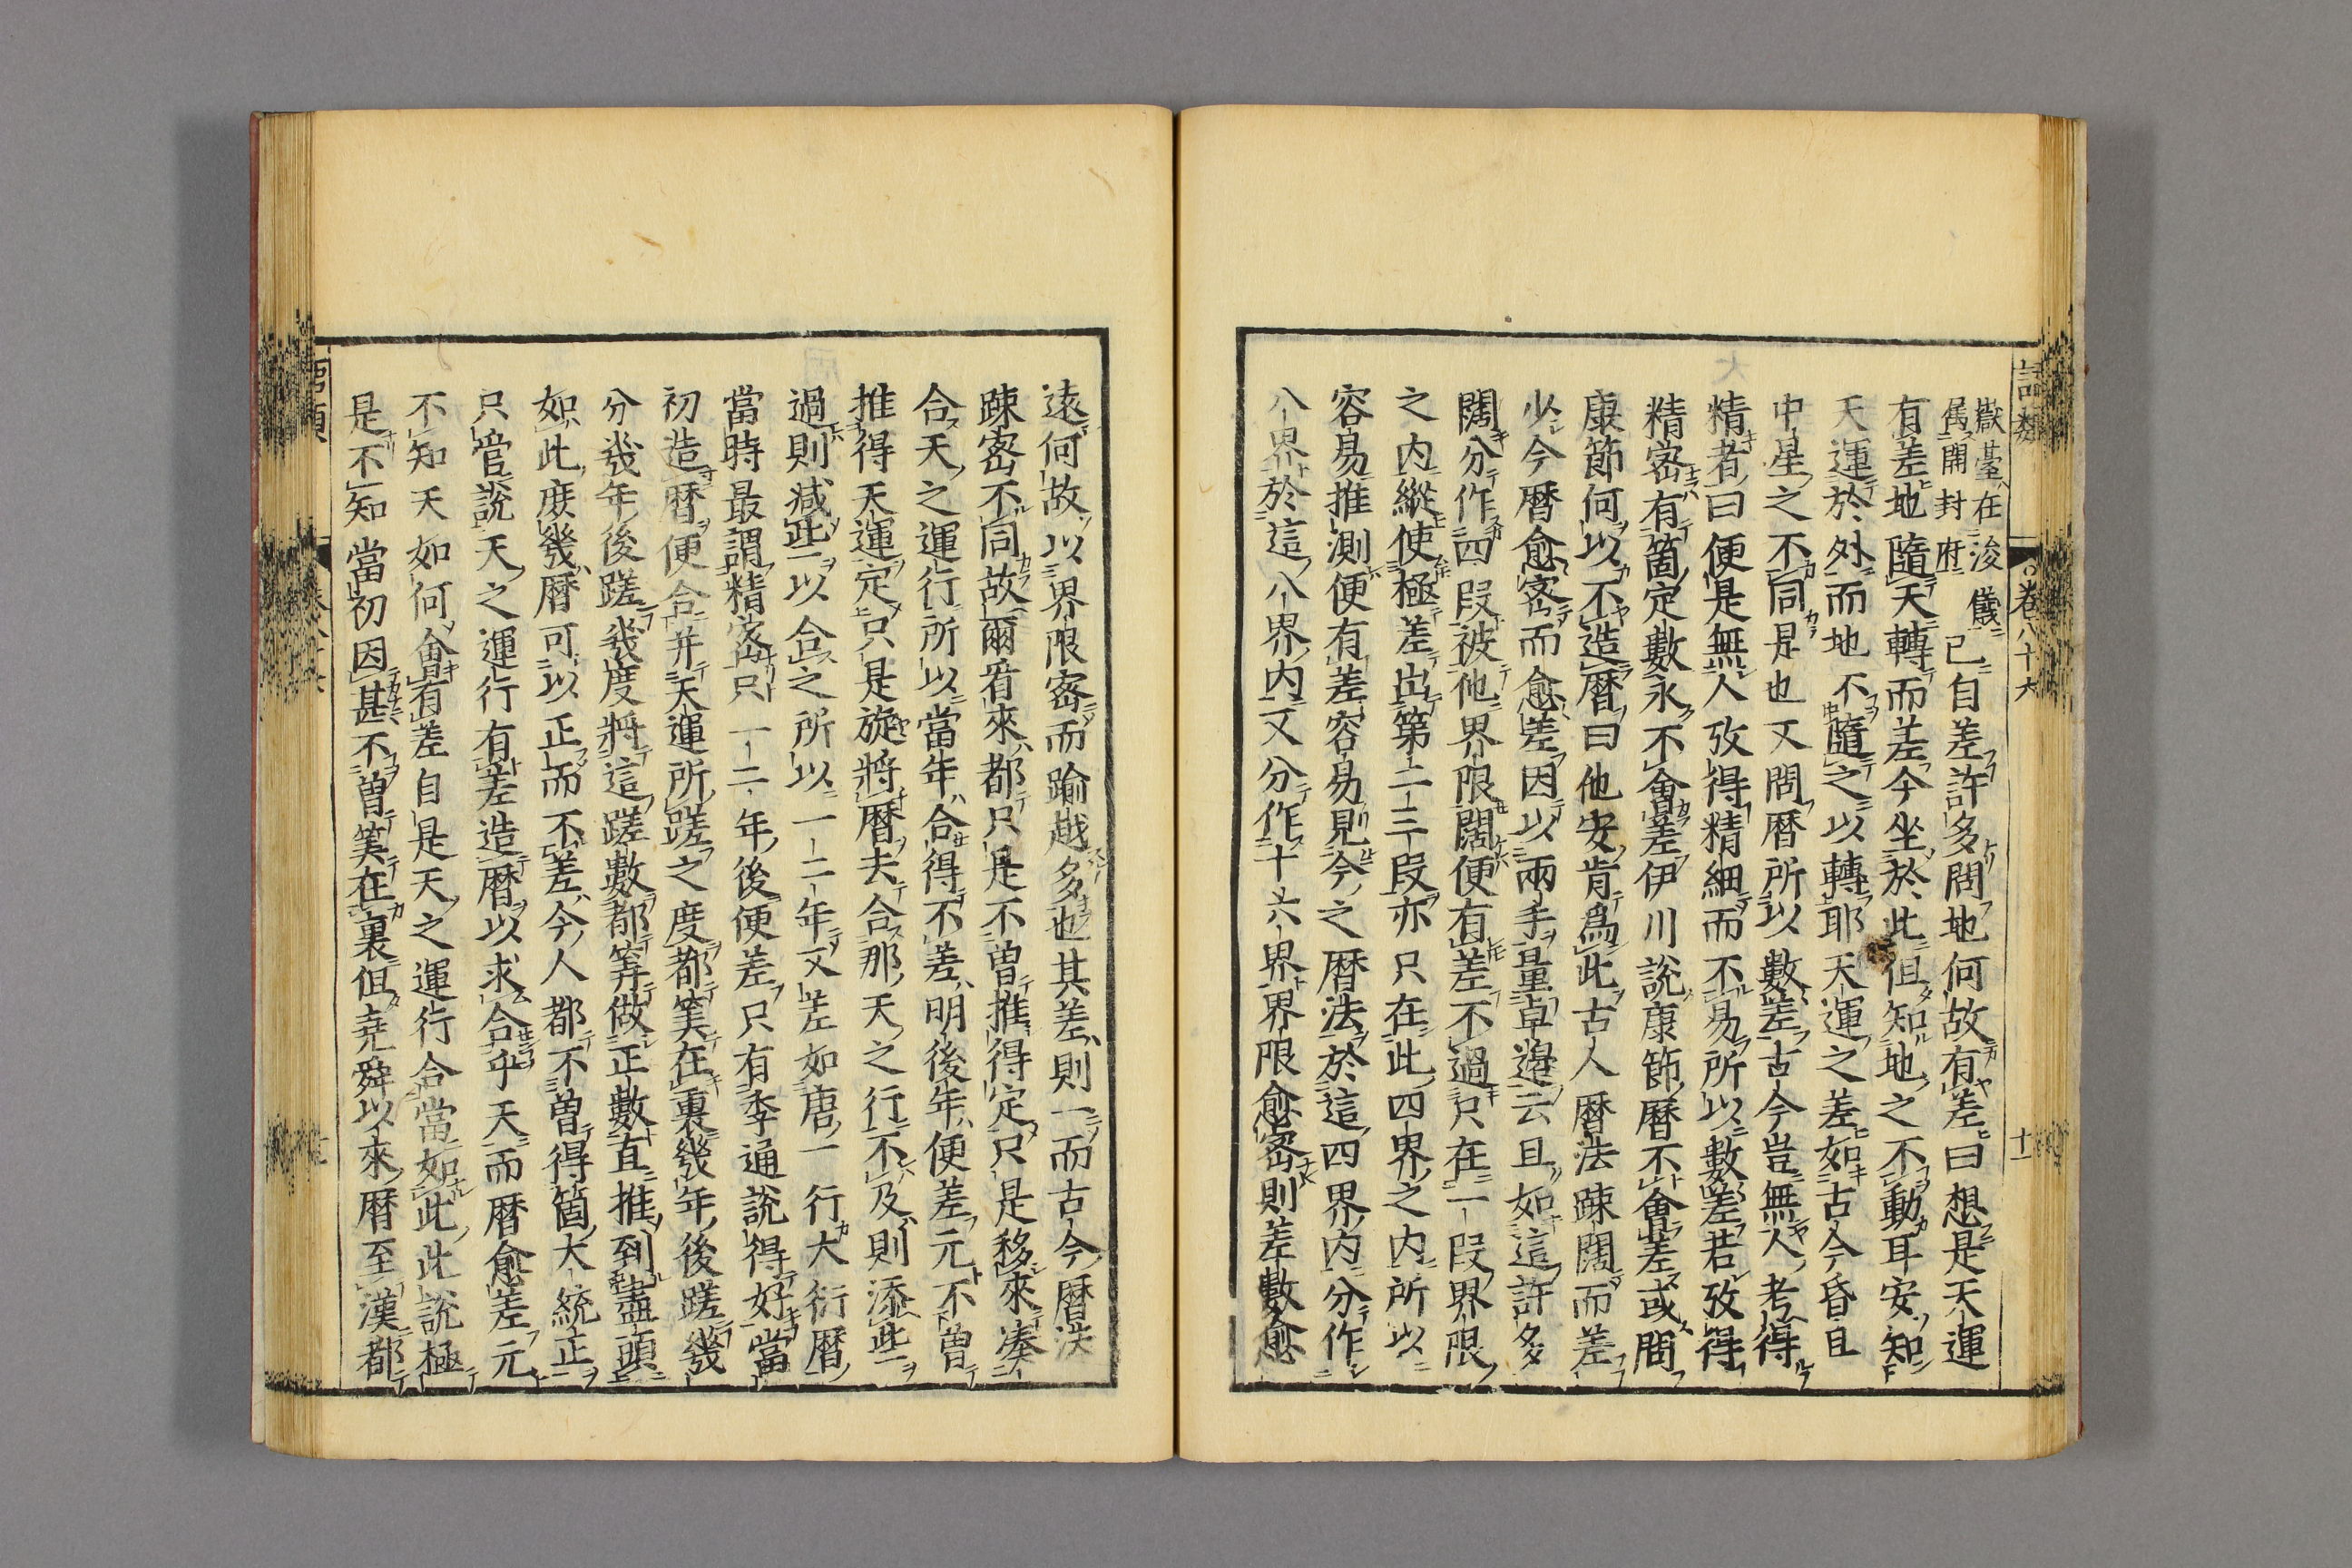 語類
卷八十六
十一
嶽臺在浚儀
属開封府
已自差許多問地何故有差曰想是天運
有差地隨天轉而差今坐於此但知地之不動耳安知
天運於外而地不隨之以轉耶天運之差如古今昏旦
中星之不同是也又問曆所以數差古今豈無人考得
精者曰便是無人攷得精細而不易所以數差若攷得
精密有箇定數永不會差伊川說康節曆不會差或問
康節何以不造曆曰他安肯爲此古人曆法踈闊而差
少今曆愈密而愈差因以兩手量卓邊云且如這許多
闊分作四段被他界限闊便有差不過只在一段界限
之内縱使極差出第二三段亦只在此四界之内所以
容易推測便有差容易見今之曆法於這四界内分作
八界於這八界内又分作十六界界限愈密則差數愈
遠何故以界限密而踰越多也其差則一而古今曆法
踈密不同故爾看來都只是不曾推得定只是移來湊
合天之運行所以當年合得不差明後年便差元不曾
推得天運定只是旋將曆去合那天之行不及則添些
過則减些以合之所以一二年又差如唐一行大衍曆
當時最謂精密只一二年後便差只有季通說得好當
初造曆便合并天運所蹉之度都筭在裏幾年後蹉幾
分幾年後蹉幾度將這蹉數都筭做正數直推到盡頭
如此庶幾曆可以正而不差今人都不曾得箇大統正
只管說天之運行有差造曆以求合乎天而曆愈差元
不知天如何會有差自是天之運行合當如此此說極
是不知當初因甚不曾筭在裏但堯舜以來曆至漢都
語類